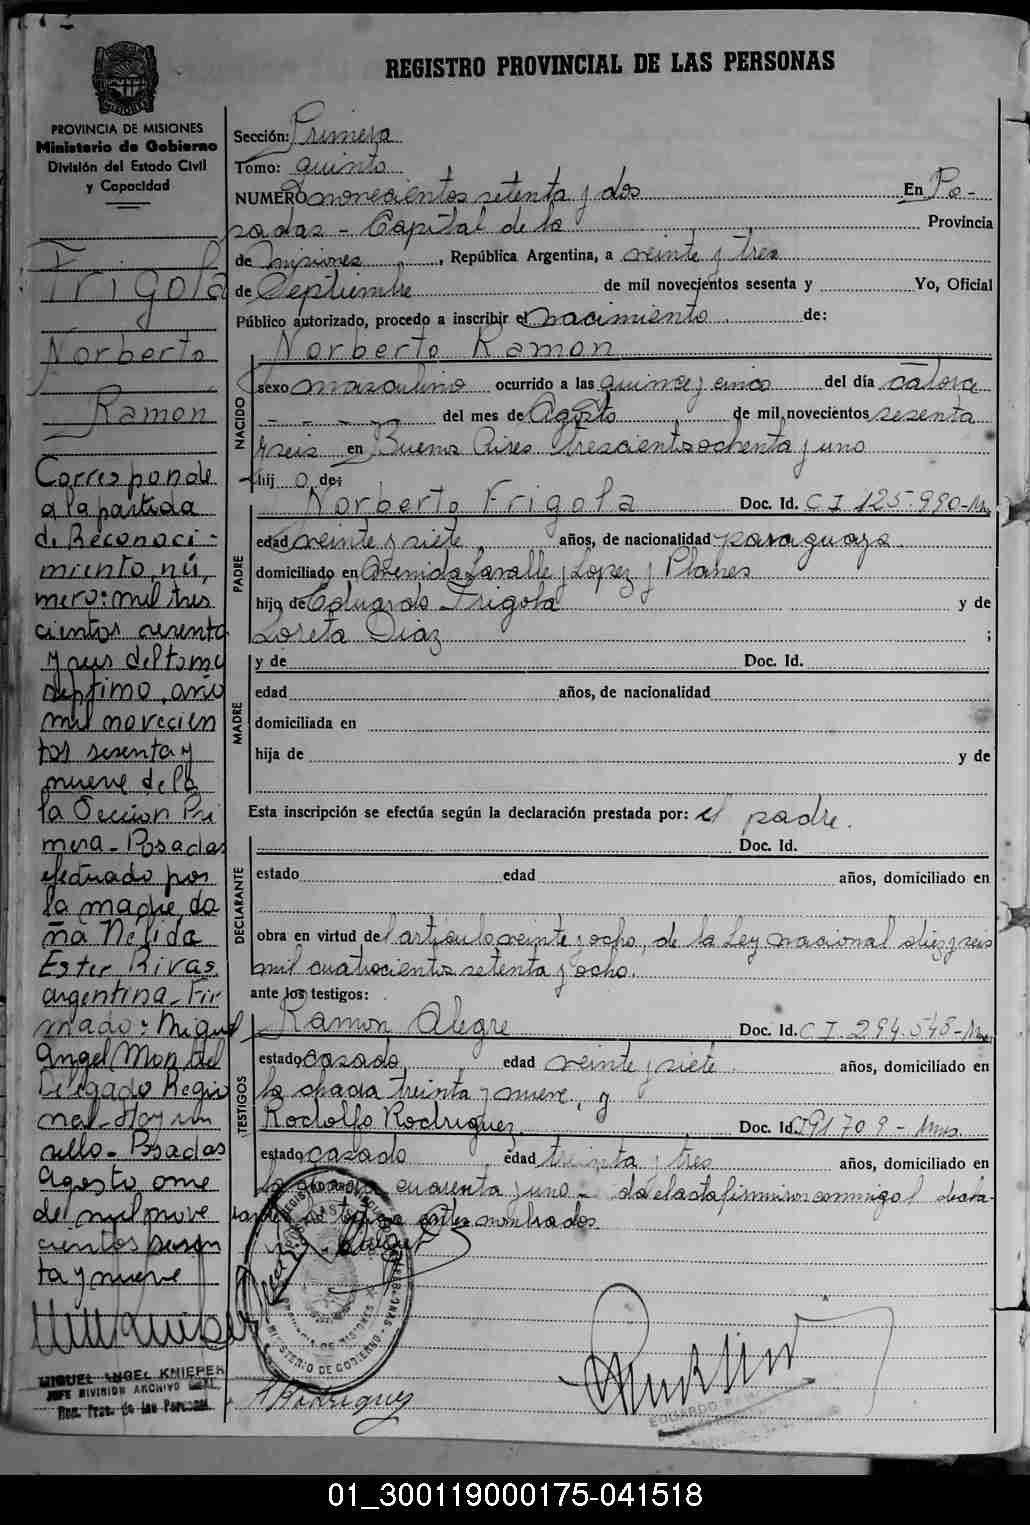 REGISTRO PROVINCIAL DE LAS PERSONAS
PROVINCIA DE MISIONES
Ministerio de Gobierno
División del Estado Civil
y Capacidad
Frigola
Norberto
Ramon
Corresponde
a la partida
de Reconoci-
miento, nú,
mero: mil tres
cientos sesenta
y seis del tomo
septimo, año
mil novecien
tos sesenta y
nueve de la
la Seccion Pri
mera - Posadas
efectuado por
la madre, do
ña Nélida
Ester Rivas.
argentina - Fir
mado: Miguel
Angel
Delegado Regio
nal - Hay un
sello - Posadas
Agosto once
de mil nove
cientos sesen
ta y nueve
MIGUEL ANGEL KNIEPER
JEFE DIVISION ARCHIVO GRAL.
Reg. Prov. de las Personas
Sección: Primera
Tomo: quinto
NUMERO novecientos setenta y dos En Po-
sadas - Capital de la Provincia
de Misiones, República Argentina, a veinte y tres
de Septiembre de mil novecientos sesenta y Yo, Oficial
Público autorizado, procedo a inscribir el nacimiento de:
Norberto Ramon
NACIDO
sexo masculino ocurrido a las quince y cinco del día catorce
- - - - - del mes de Agosto de mil novecientos sesenta
y seis en Buenos Aires trescientos ochenta y uno
hij o de:
PADRE
Norberto Frigola Doc. Id. C I 125.990-Mnes
edad veinte y siete años, de nacionalidad paraguaya
domiciliado en Avenida Lavalle y Lopez y Planes
hijo de Eduardo Frigola y de
Loreta Diaz ;
MADRE
y de Doc. Id.
edad años, de nacionalidad
domiciliada en
hija de y de
Esta inscripción se efectúa según la declaración prestada por: el padre.
DECLARANTE
Doc. Id.
estado edad años, domiciliado en
obra en virtud del artículo veinte y ocho, de la Ley nacional diez y seis
mil cuatrocientos setenta y ocho.
ante los testigos:
TESTIGOS
Ramon Alegre Doc. Id. C I. 294.548-Mnes
estado casado edad veinte y siete años, domiciliado en
la chacra treinta y nueve, y
Rodolfo Rodriguez Doc. Id. 191709 - Mnes
estado casado edad treinta y tres años, domiciliado en
la cuarenta y uno - da el acta firmaron conmigo l decla-
rante y testigos antes nombrados
REGISTRO PROVINCIAL DE LAS PERSONAS
MINISTERIO DE GOBIERNO
PROVINCIA DE MISIONES
Rodriguez
EDUARDO
01_300119000175-041518